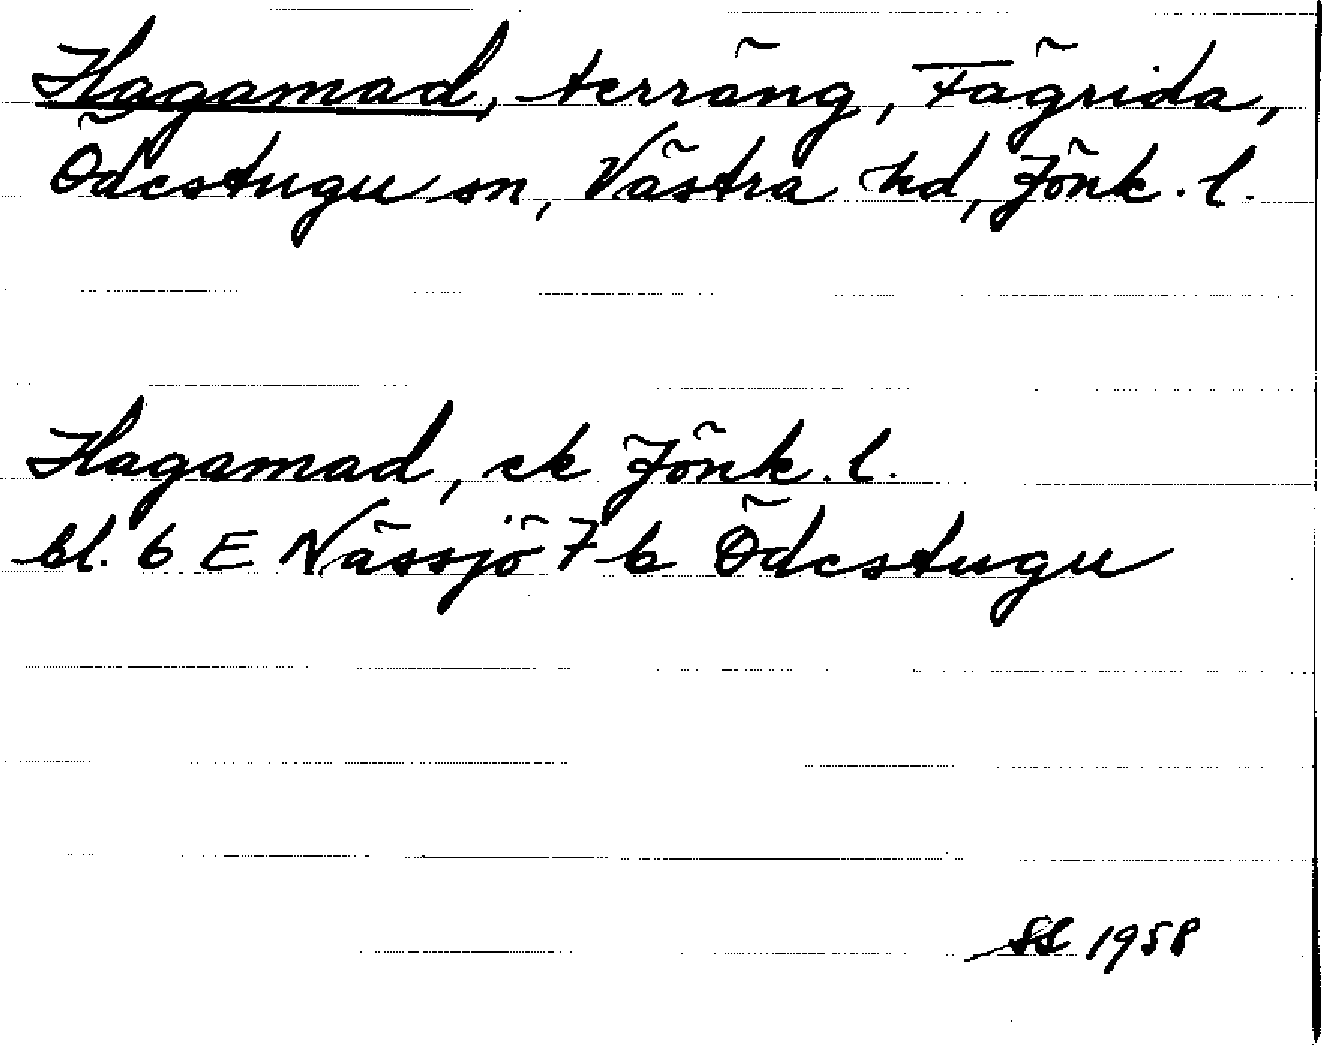 Hagamad, terräng, Fägrida,
Ödestugu sn, Västra hd, Jönk. l.
Hagamad, ek Jönk. l.
bl. 6 E Nässjö 7 b Ödestugu
SL 1958